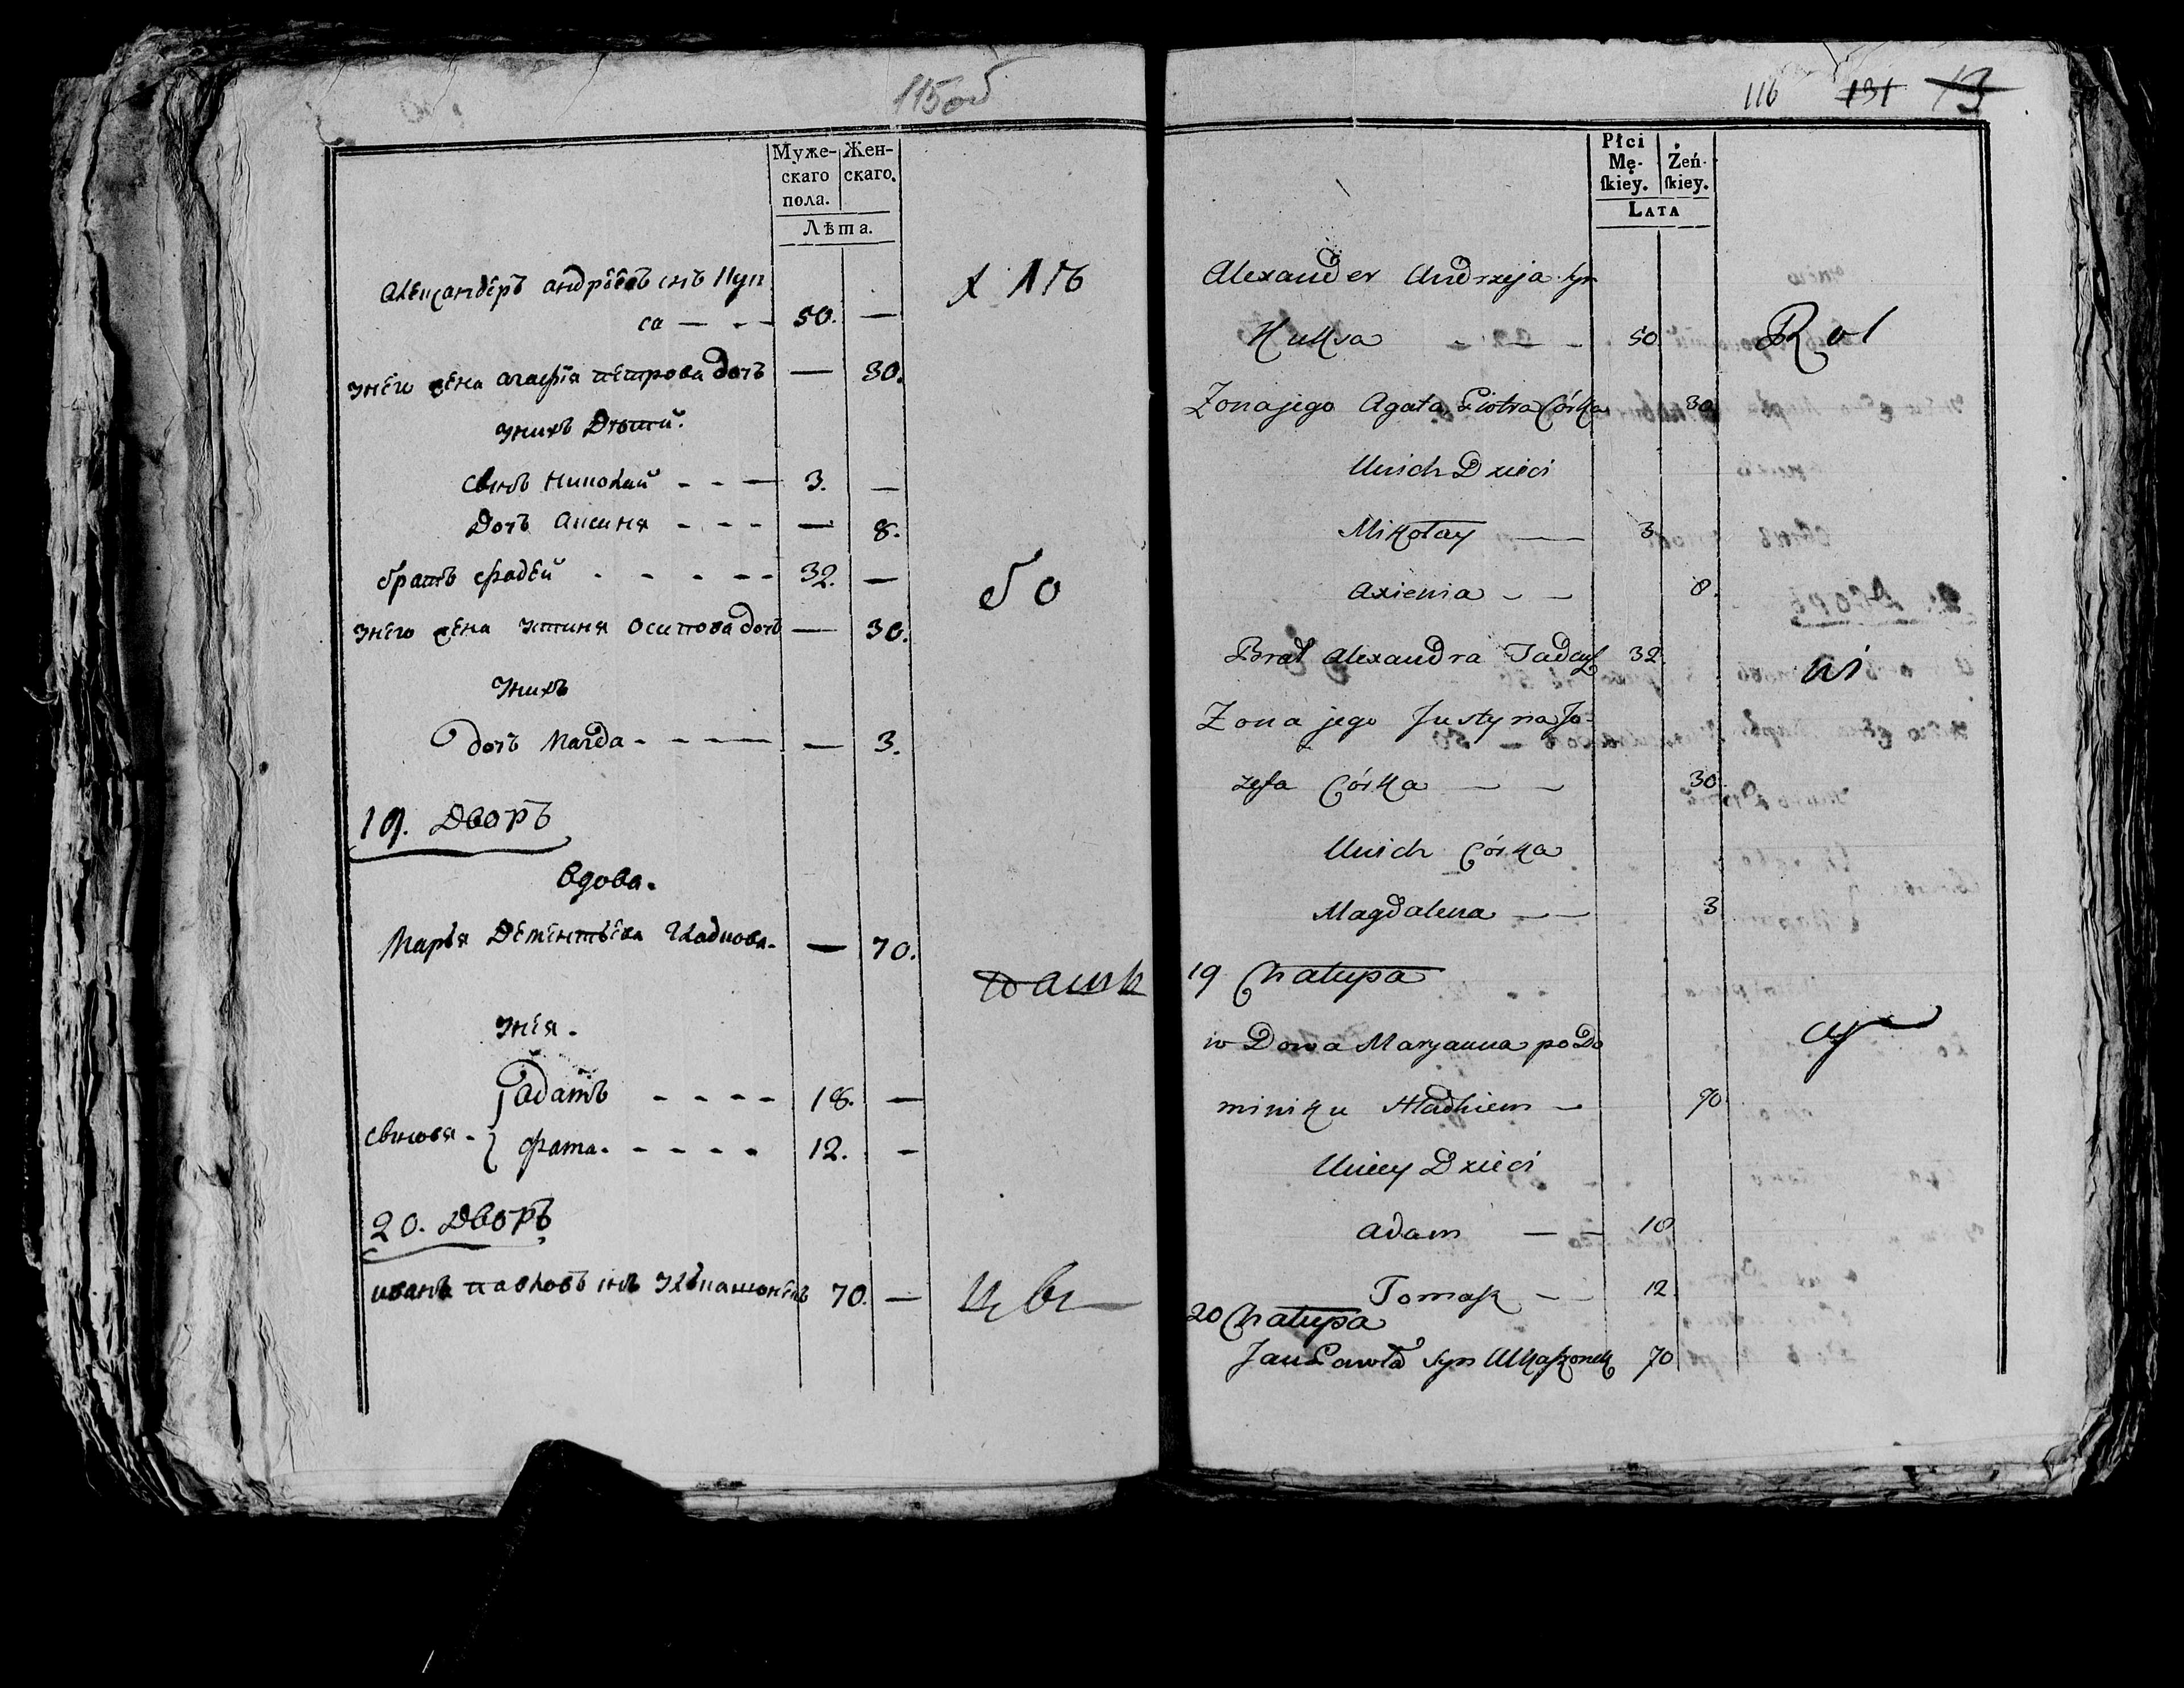 115об
Муже-
скаго
пола.
Жен-
скаго.
Лѣта.
Александеръ андрѣевъ снъ Кук
са — - - 50. —
Унего жена агафія петрова дочъ — 30.
Унихъ Дѣти.
Сынъ николай - - — 3. —
Дочъ аксиня - - - — 8.
братъ фадей - - - - - 32. —
Унего жена устиня осипова дочъ — 30.
Унихъ
дочъ Магда - - - — — 3.
19. Дворъ
Вдова.
Марья Дементьева Гладкова. — 70.
Унея.
Сыновя адамъ - - - - 18. —
фама - - - - - 12. -
20. Дворъ
иванъ павловъ снъ 70. —
бо
116 131 13
Płci
Mę-
ſkiey.
Żeń-
ſkiey.
LATA
Alexander Andrzeja syn
Kuksa - — - 50
Zona jego Agata Piotra Córka 30
Unich Dzieci
Mikołay — 3
Axienia - - 8.
Brat Alexandra Tadeusz 32
Zona jego Justyna Jo-
zefa Córka — - 30
Unich Córka
Magdalena - — 3
19 Chałupa
w Dowa Maryanna po Do
miniku Hładkiem - 70
Uniey Dzieci
Adam — — 18
Tomasz - - 12
20 Chałupa
Jan Pawła syn Ukaszonek 70
Rol
ni